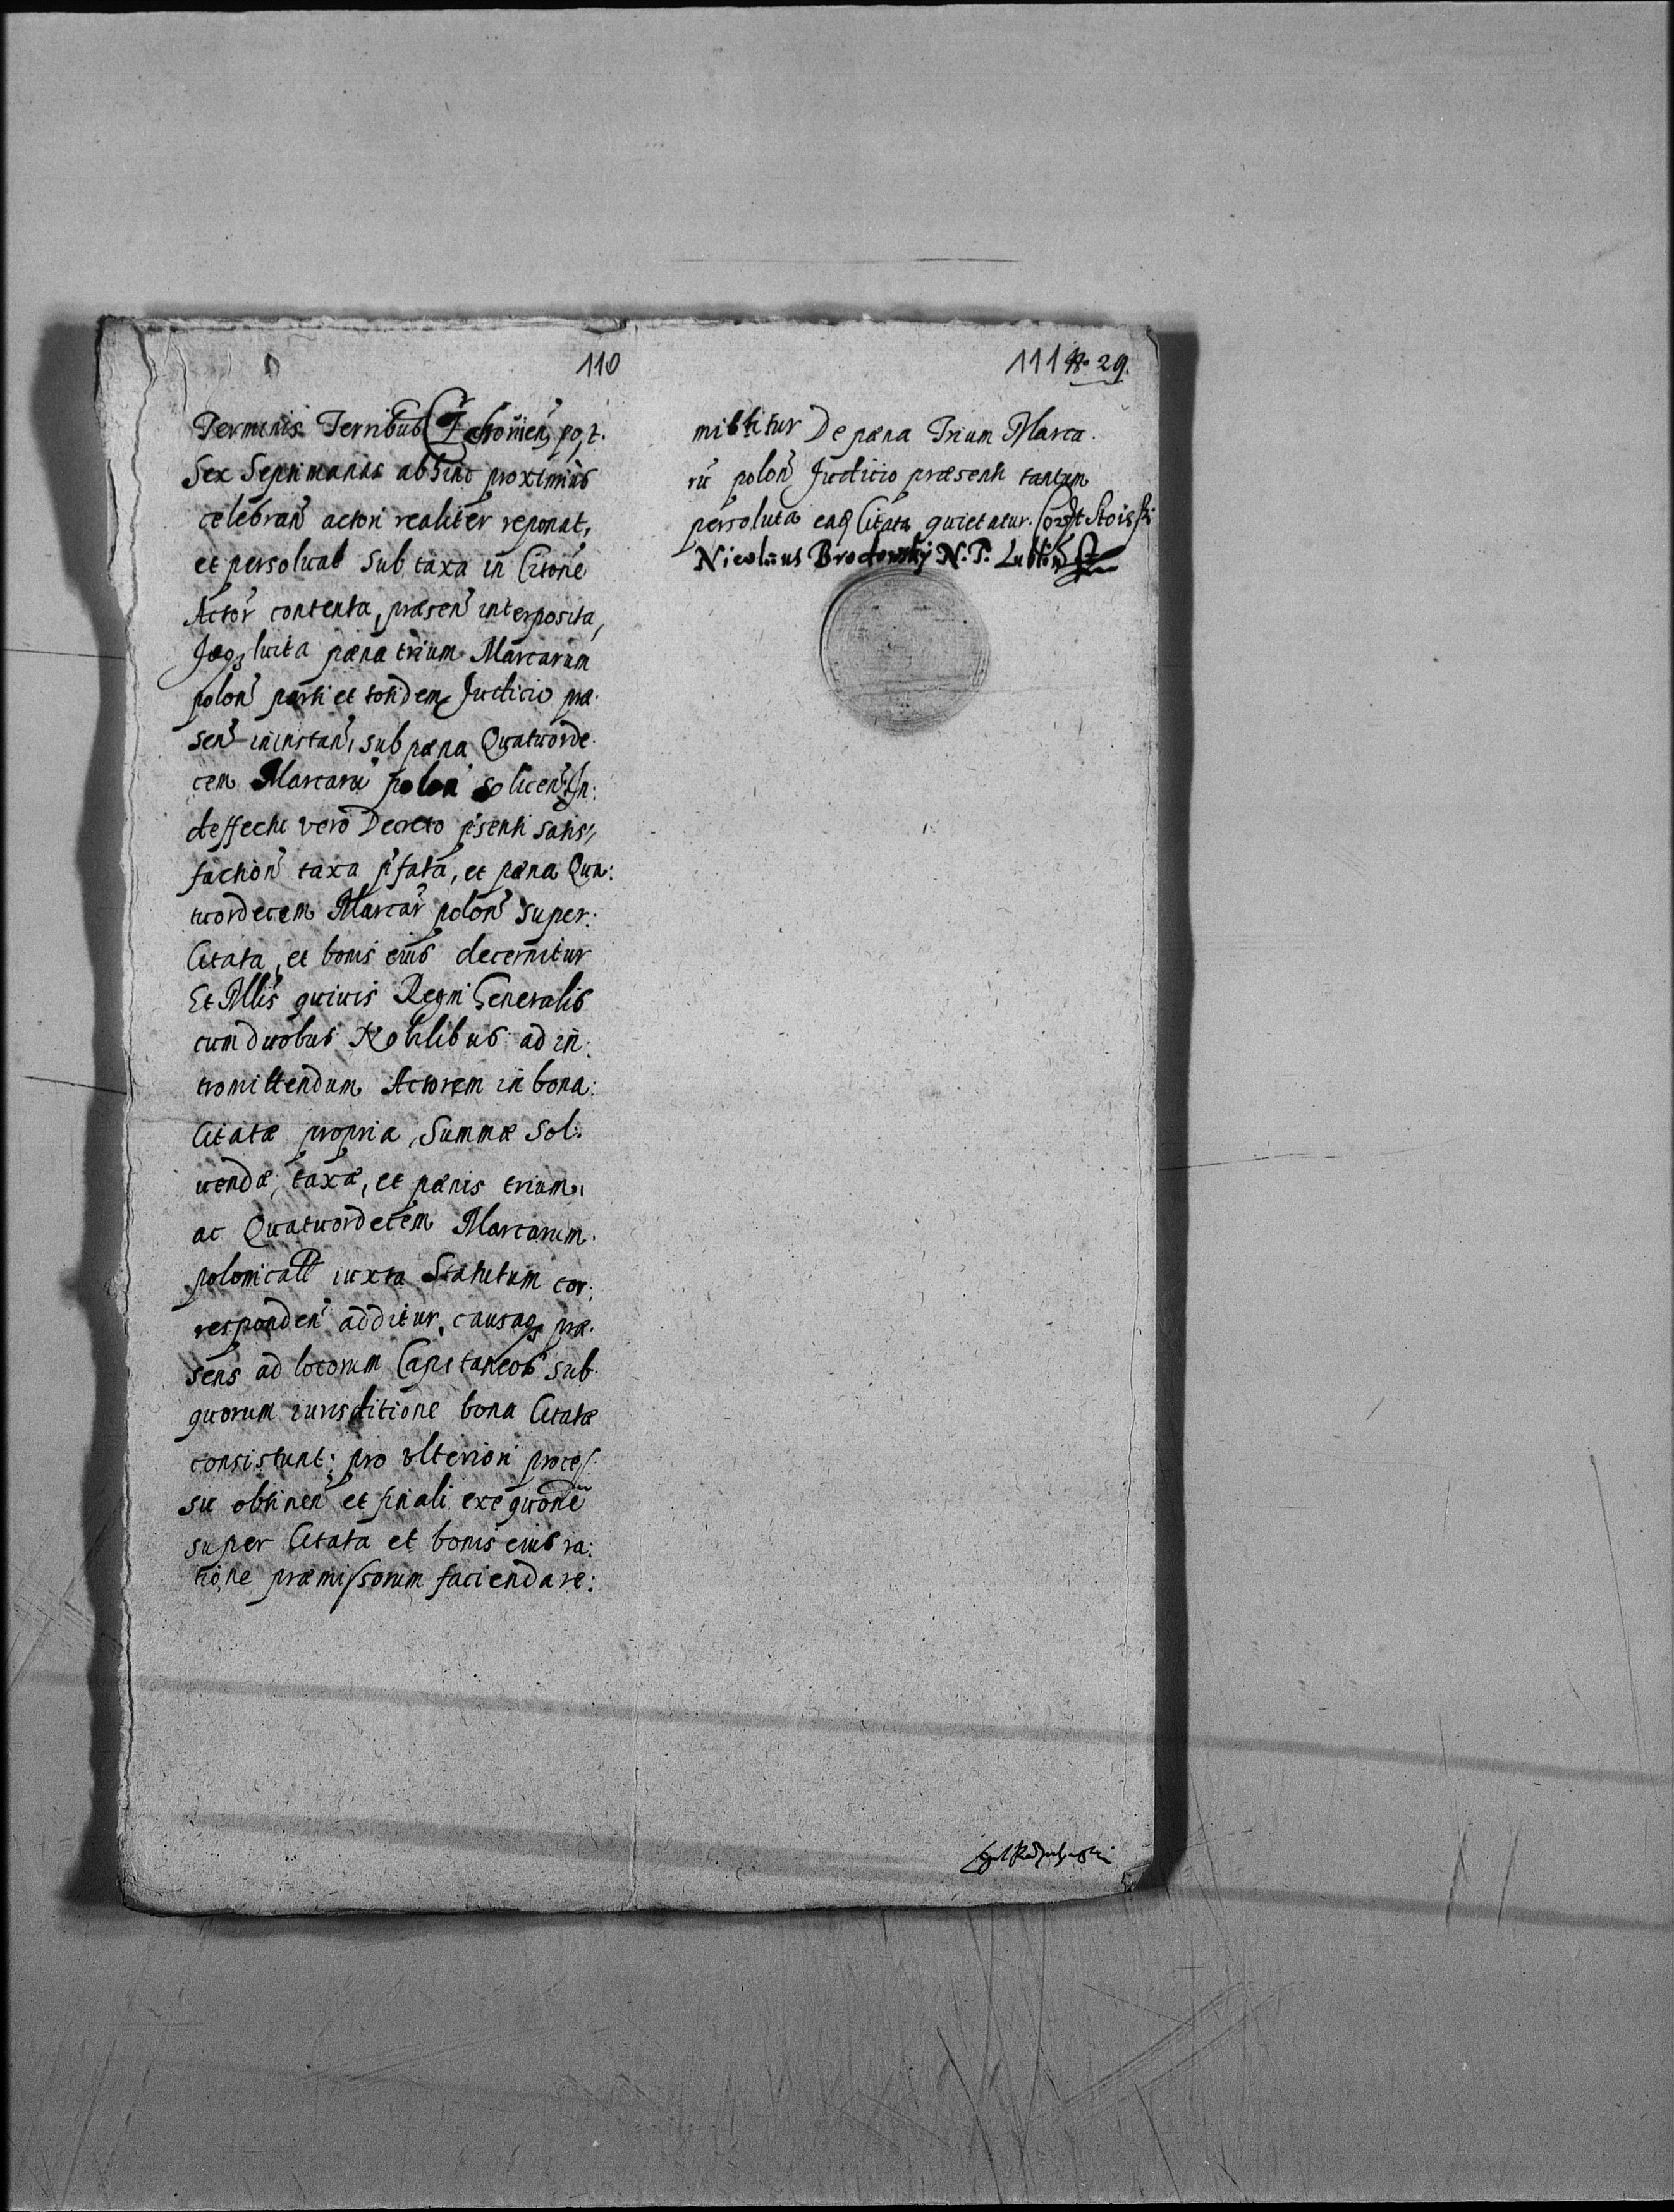 110
Terminis Terribus post
Sex Septimanas abhinc proximius
celebran actori realiter reponat,
et persolvat sub taxa in Citone
Actor contenta, præsen interposita,
Jaqз luita pæna trium Marcarum
polon parti et totidem Judicio præ:
sen ininstan, sub pæna Quatuorde:
cem Marcarū polon so licen: In:
deffectu vero Decreto pśenti satis,
faction taxa pfata, et pæna Qua:
tuordecem Marcar polon super:
Citata, et bonis eius decernitur
Et Mllis quivis Regni Generalis
cum duobus Nobilibus ad in:
tromittendum Actorem in bona:
Citatæ propria, Summæ sol:
uendæ, taxæ, et pænis trium,
ac Quatuordecem Marcarum
polonicall iuxta Statutum cor:
responden additur, causaqз præ:
sens ad locorum Capitaneos sub
quorum iurisditione bona Citatæ
consistunt: pro ulteriori proces:
su obtinen et finali exequone
super Citata et bonis eius ra:
tione præmissorum facienda re:
111 No 29.
mittitur De pæna Trium Marca:
rū polon Judicio præsenti tantum
persoluta eaqз Citata quietatur.
Nicolaus Brodowskij N. T. Lublin